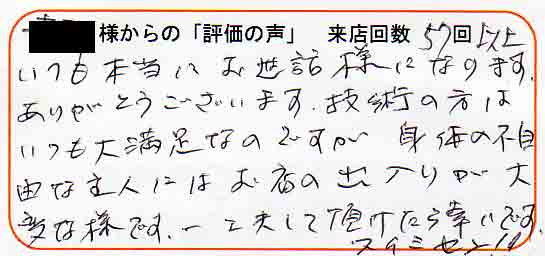 様からの「評価の声」 来店回数 57回以上
いつも本当にお世話様になります。
ありがとうございます。技術の方は
いつも大満足なのですが 身体の不自
由な主人にはお店の出入りが大
変な様です。一工夫して頂けたら幸いです。
スイミセン!!